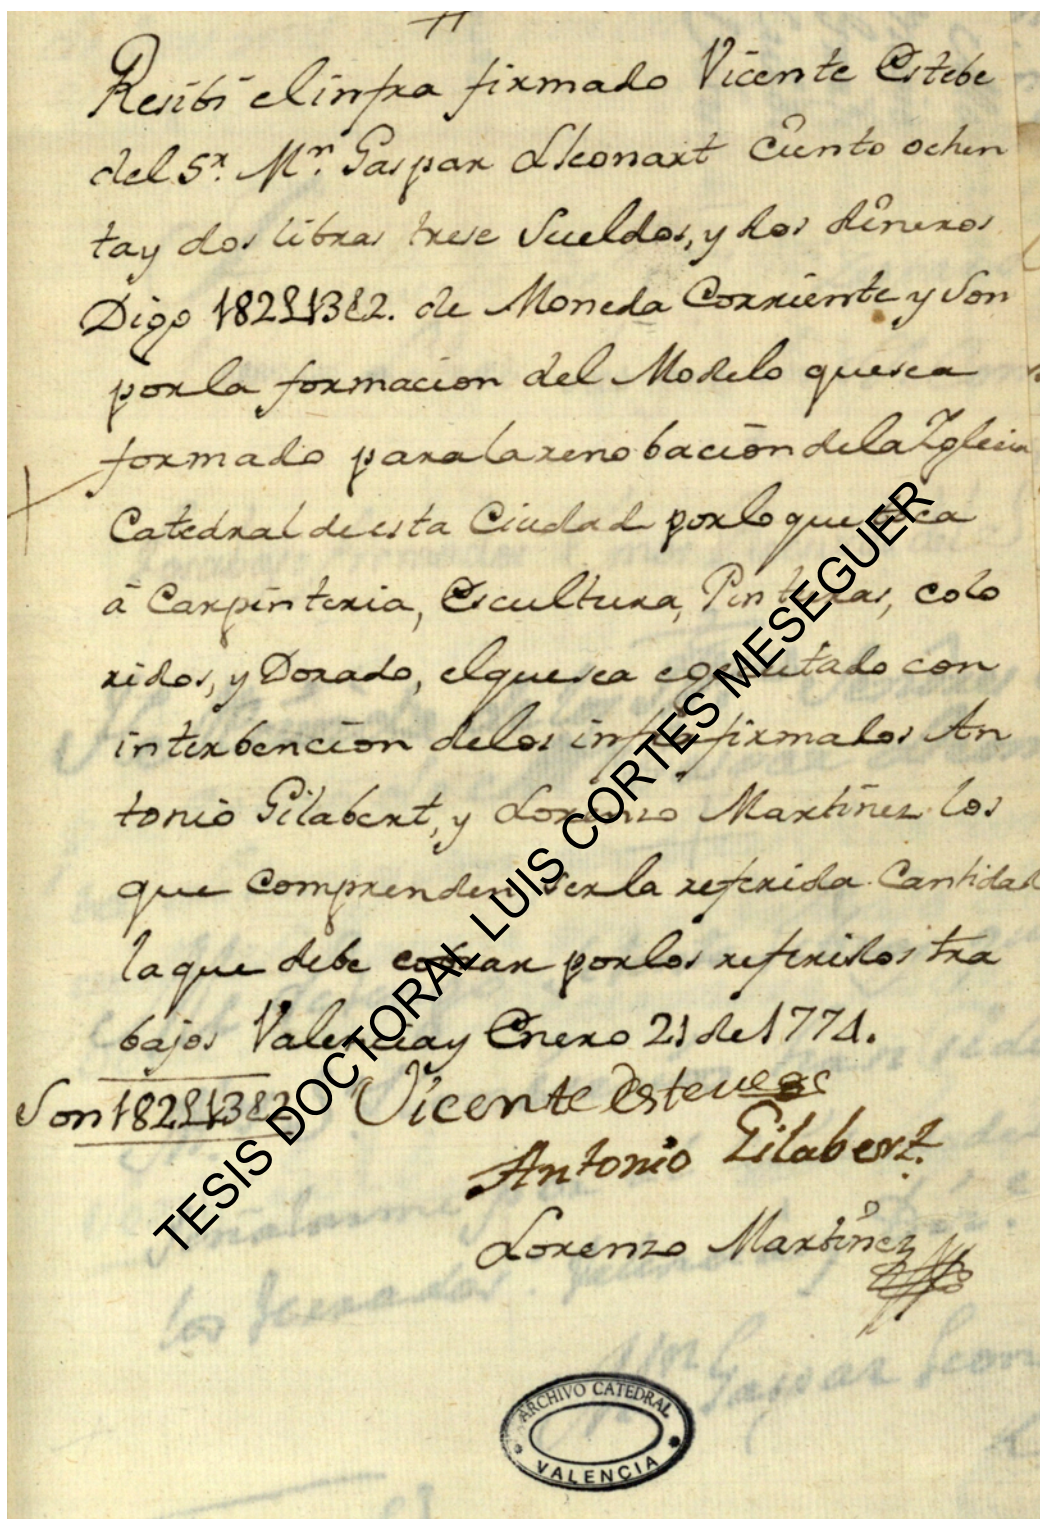 Resibi el infra firmado Vicente Estebe
del Sr. Mn. Gaspar Lleonart Ciento ochen
ta y dos libras trese Sueldos, y dos dineros
Digo 182L13s2. de Moneda Corriente y son
por la formacion del Modelo que sea
formado para la renobacion de la Iglecia
Catedral de esta Ciudad por lo que toca
á Carpinteria, Escultura, Pinturas, colo
ridos, y Dorado, el que sea egecutado con
interbencion de los infra firmados An
tonio Gilabert, y Lorenzo Martinez los
que comprenden ser la referida Cantidad
la que debe cobrar por los referidos tra
bajos Valencia y Enero 21 de 1774.
Son 182L13s2 Vicente Esteve
Antonio Gilabert.
Lorenzo Martinez
TESIS DOCTORAL LUIS CORTES MESEGUER
ARCHIVO CATEDRAL
VALENCIA